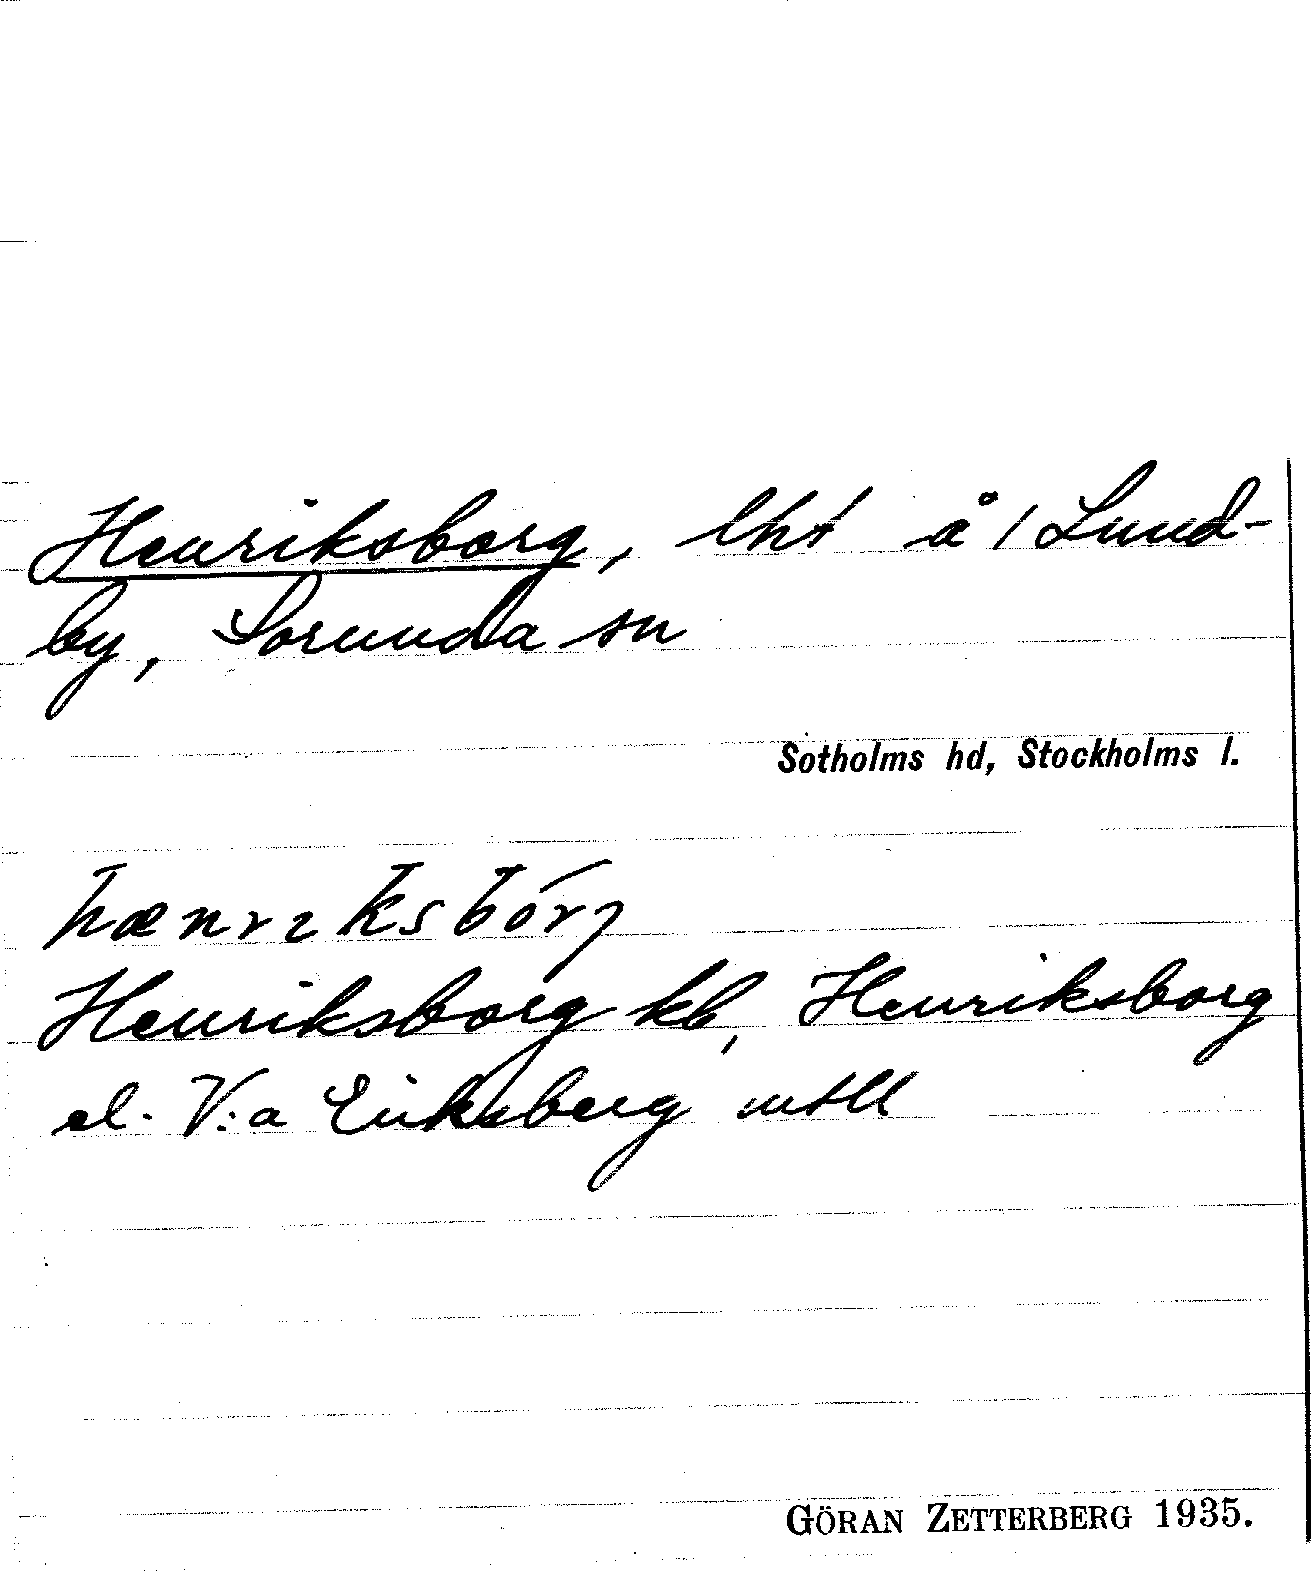 Henriksborg, lht å / Lund-
by, Sorunda sn
Sotholms hd, Stockholms l.
hænrıksbórj
Henriksborg kb, Henriksborg
el. V:a Eriksberg mtll
GÖRAN ZETTERBERG 1935.